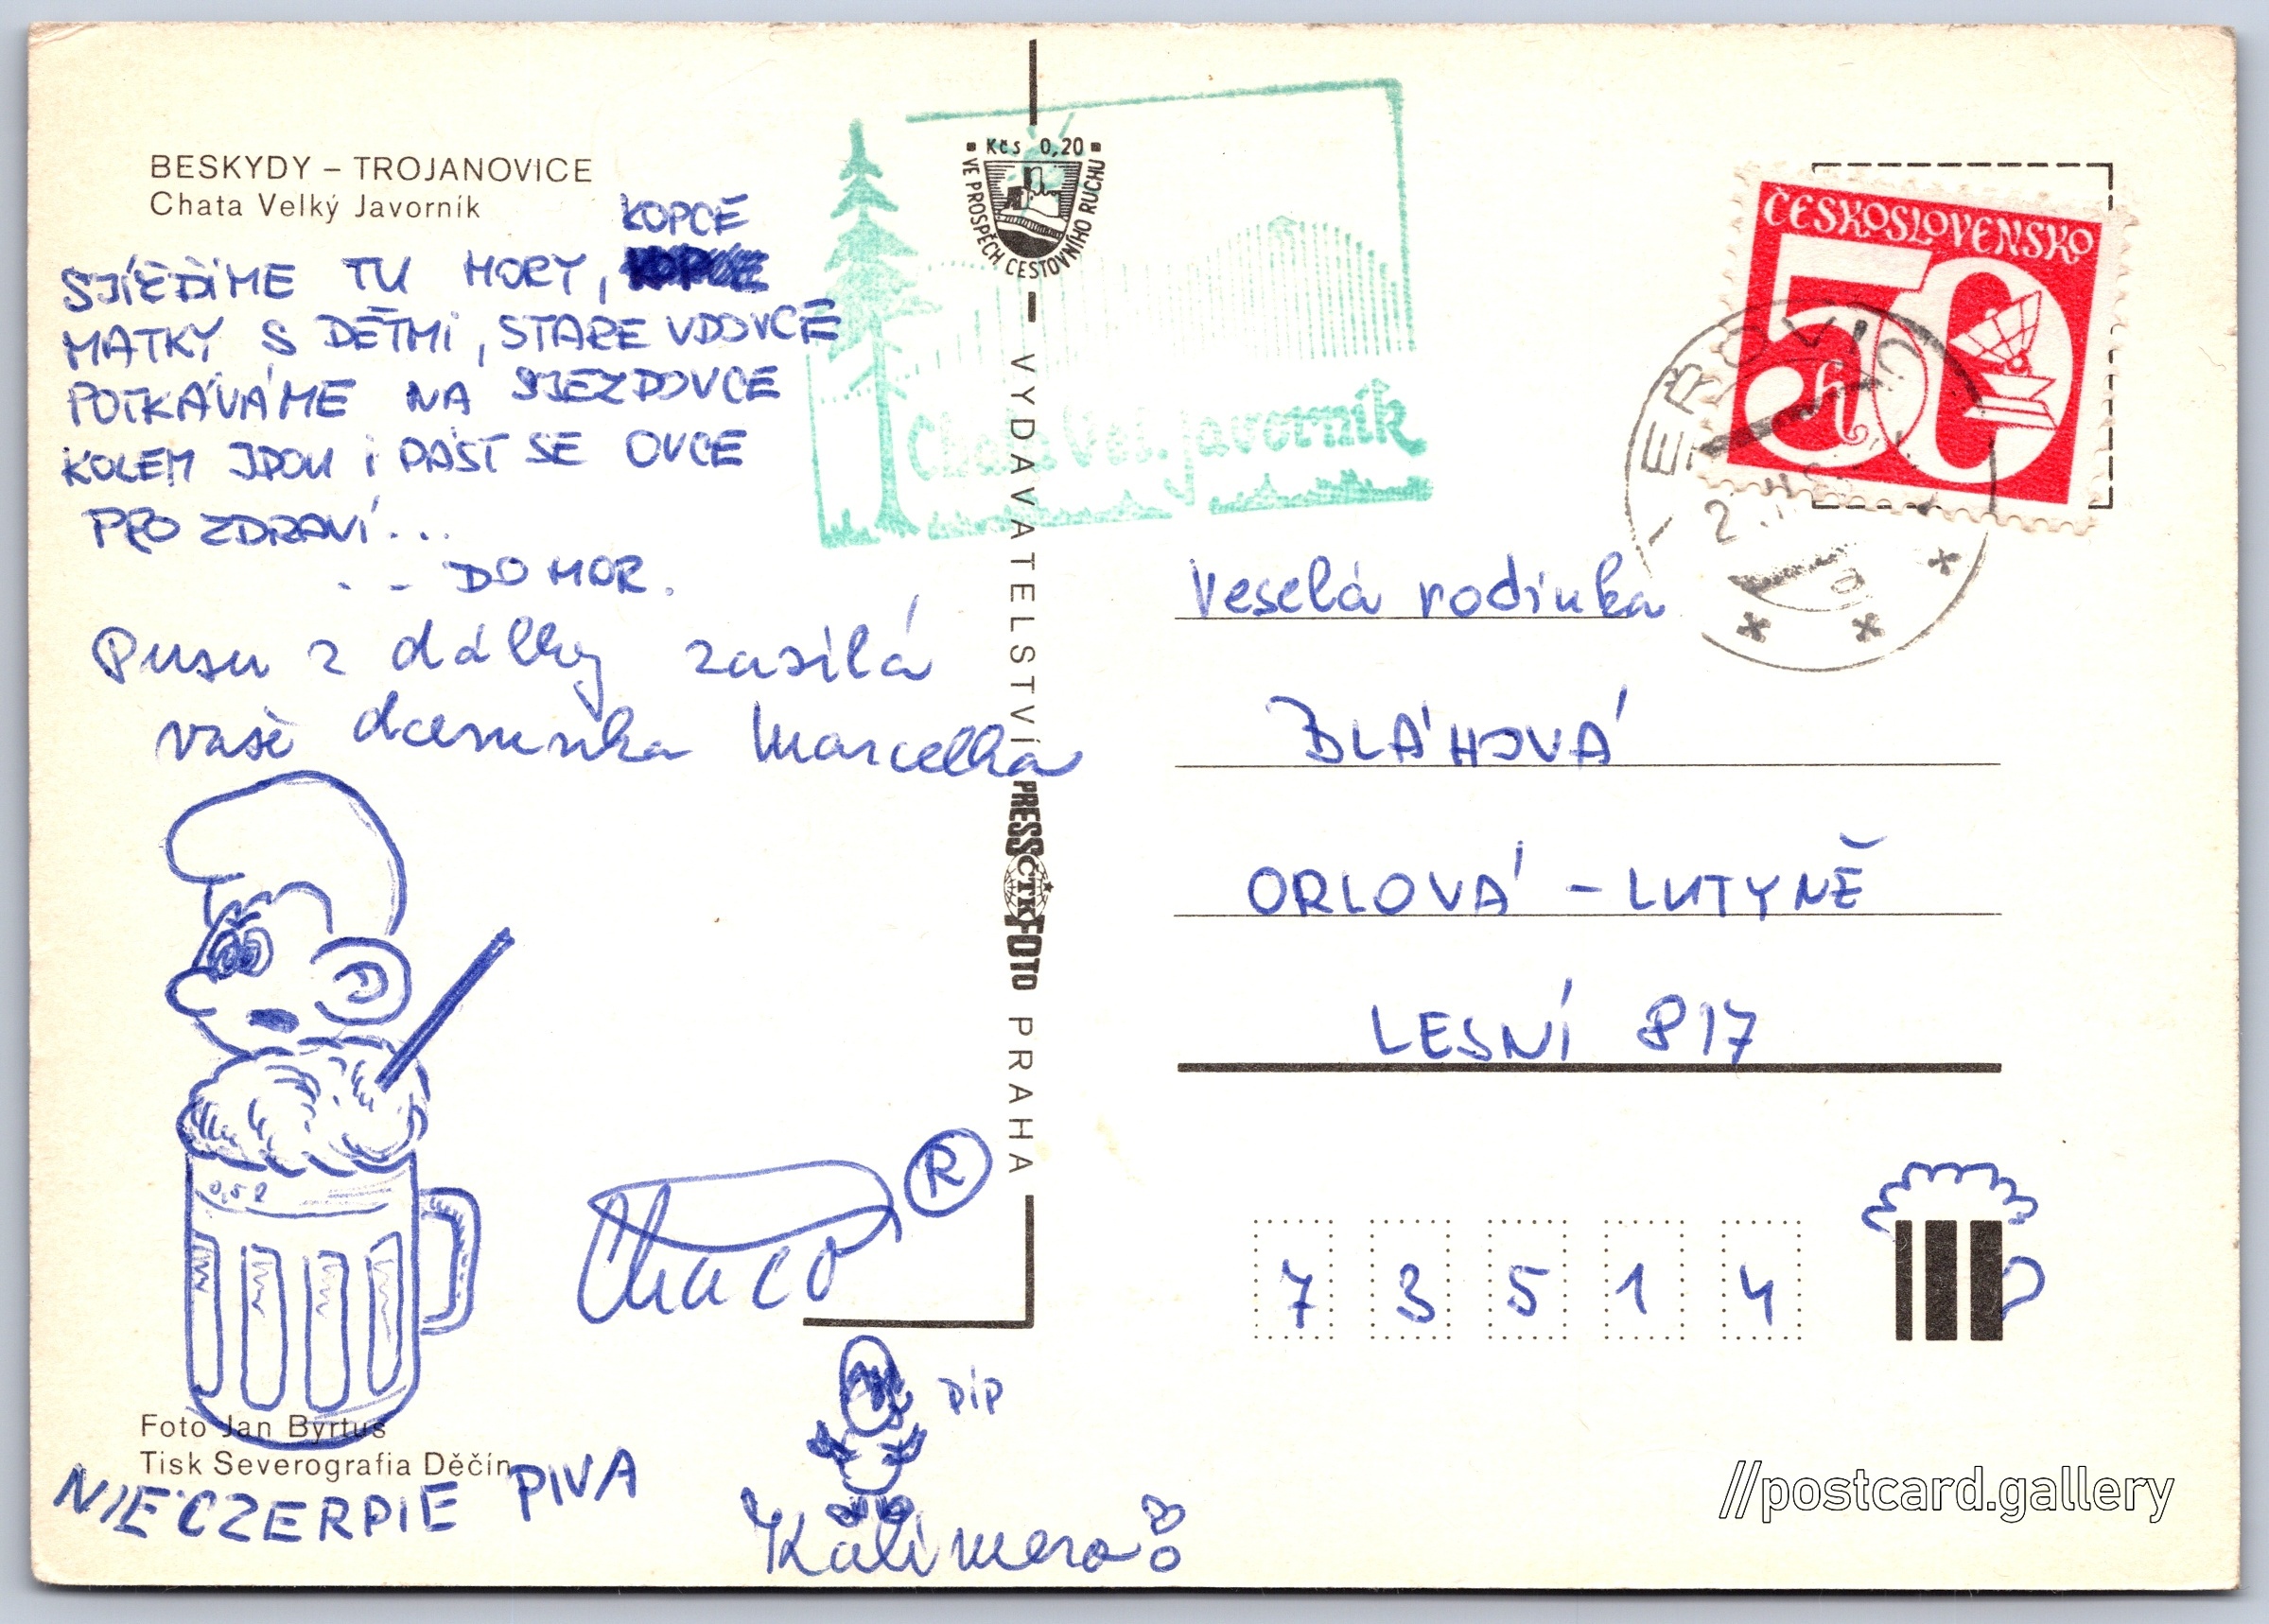 BESKYDY – TROJANOVICE
Chata Velký Javorník
KOPCE
SJÍŽDÍME TU HORY,
MATKY S DĚTMI, STARÉ VDOVCE
POTKÁVÁME NA SJEZDOVCE
KOLEM JDOU I PÁST SE OVCE
PRO ZDRAVÍ...
.. DO HOR.
Pusu z dálky zasílá
vaše dcerunka Marcelka
0,5 l
Chaco ®
Foto Jan Byrtus
Tisk Severografia Děčín
NIECZERPIE PIVA
PÍP
Kalimero
Kčs 0,20
VE PROSPĚCH CESTOVNÍHO RUCHU
VYDAVATELSTVÍ PRESSFOTO PRAHA
ČTK
Chata Vel. Javorník
ČESKOSLOVENSKO
50 h
Veselá rodinka
BLÁHOVÁ
ORLOVÁ – LUTYNĚ
LESNÍ 817
7 3 5 1 4
//postcard.gallery